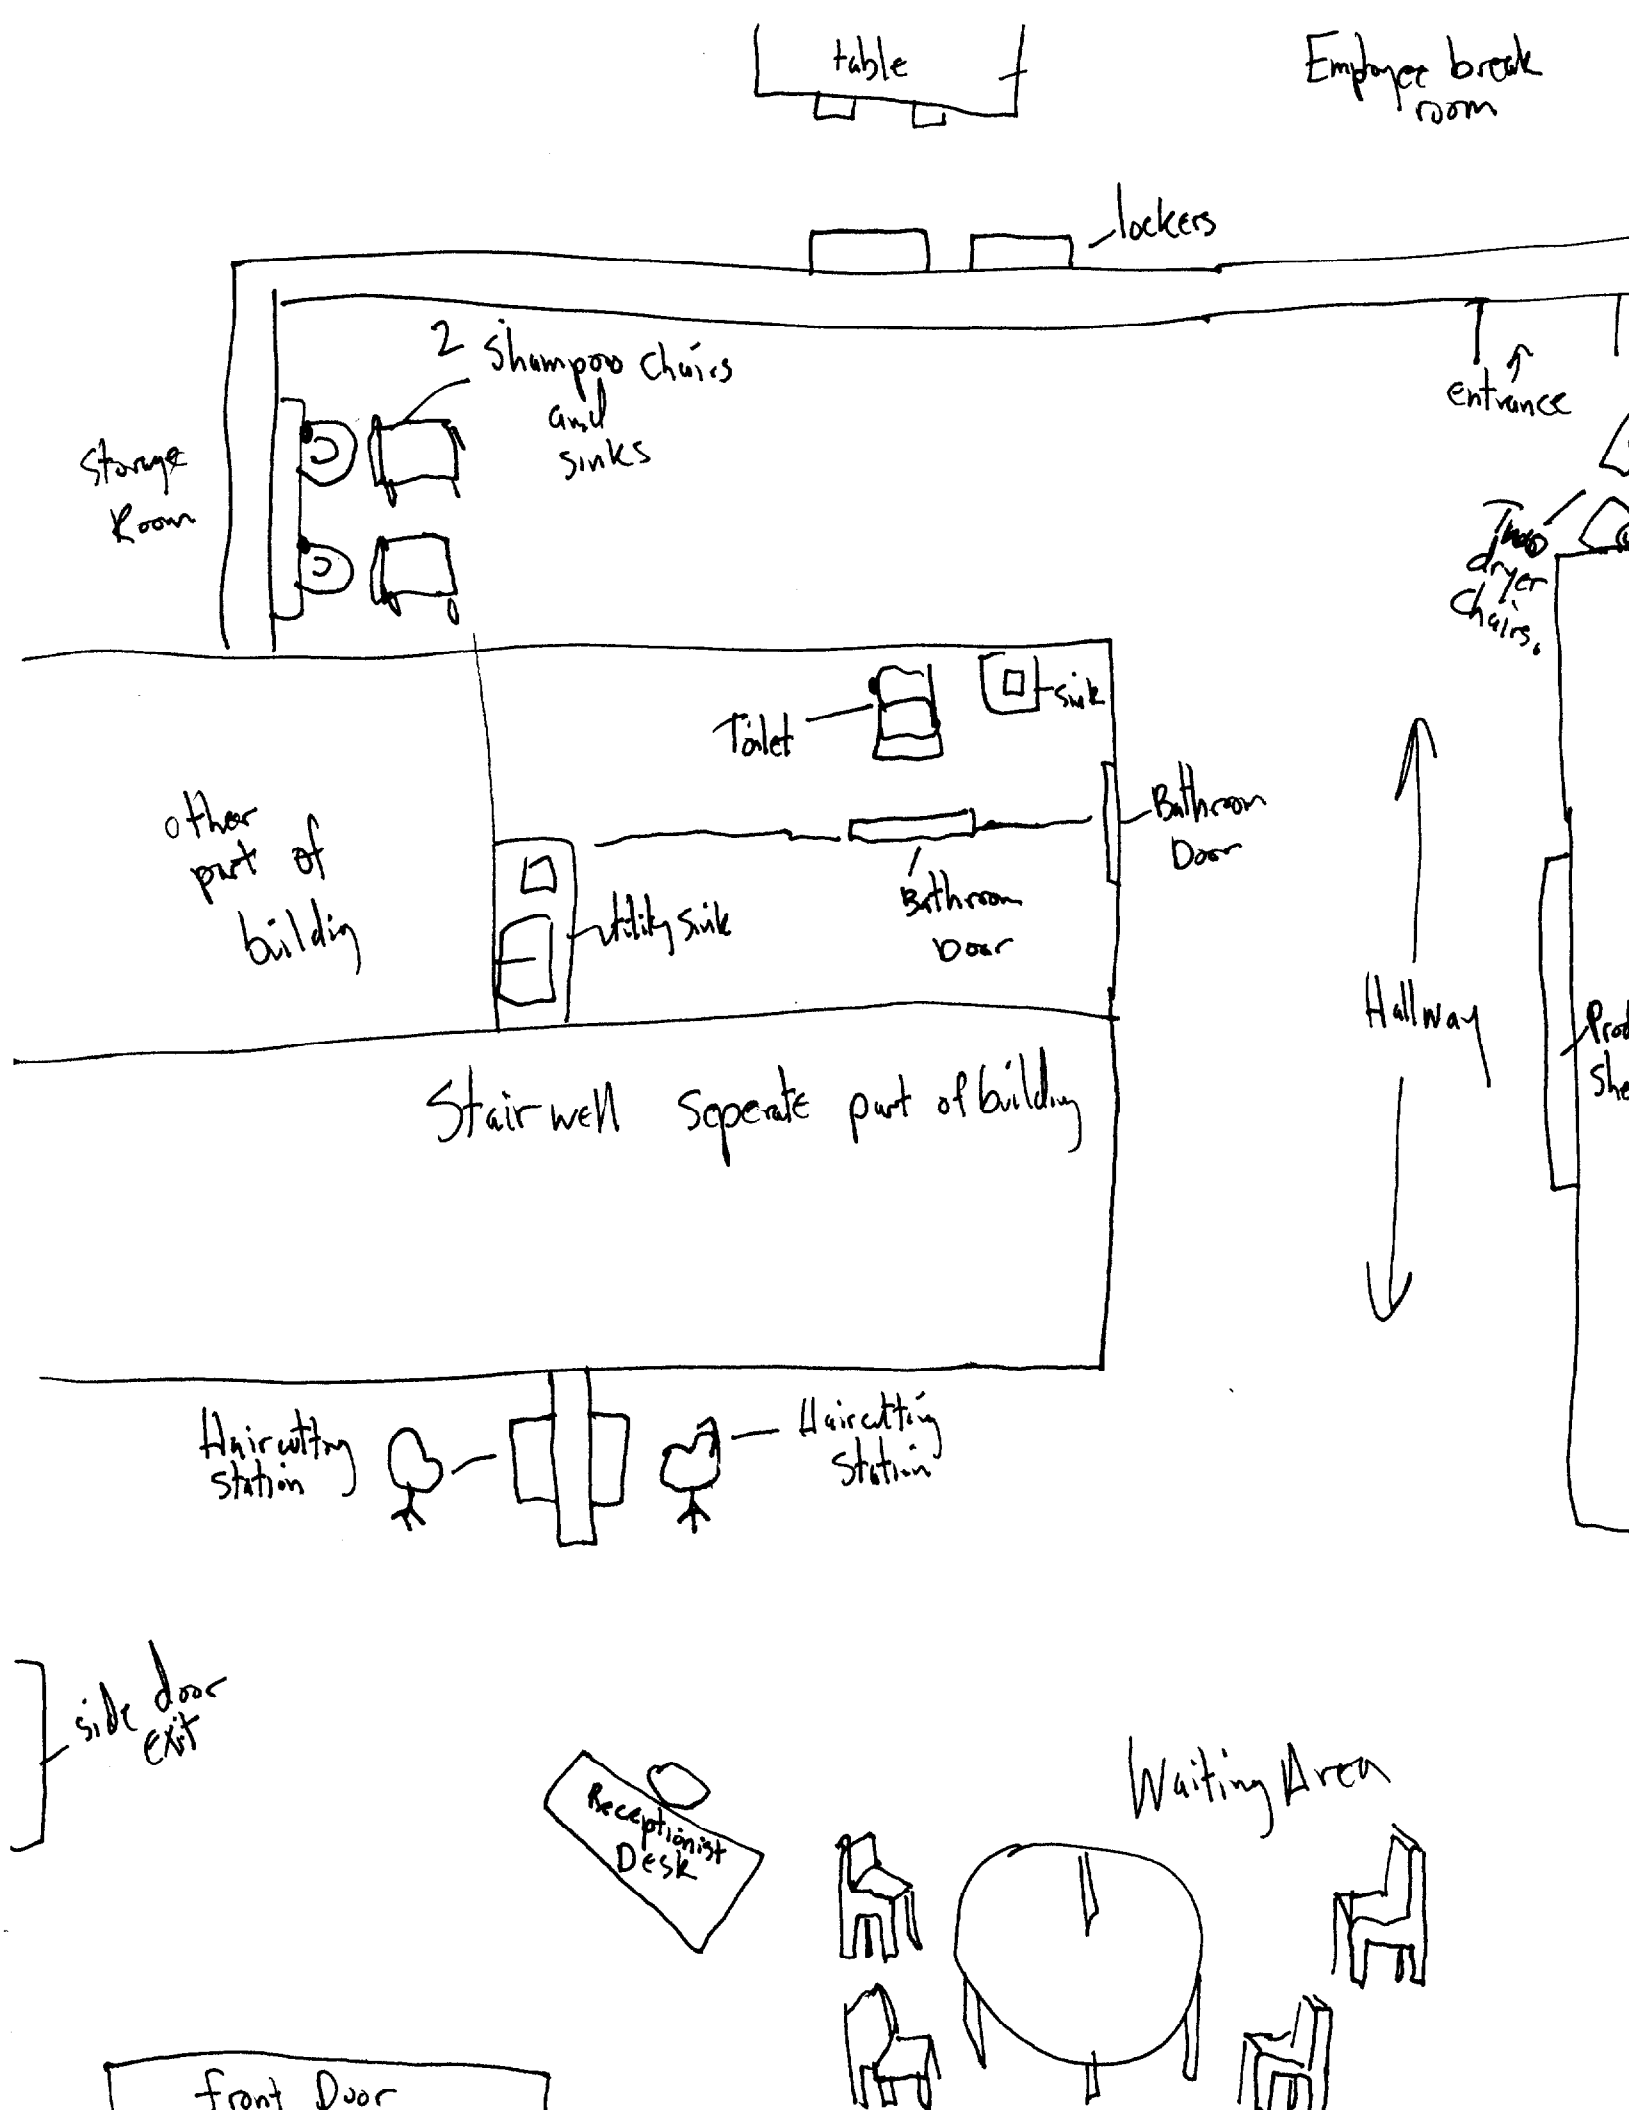 table
Employee break
room
lockers
2 Shampoo chairs
and
sinks
entrance
Storage
Room
Two
dryer
Chairs.
Toilet
sink
Bathroom
Door
other
part of
building
utility sink
Bathroom
Door
Hallway
Prod
She
Stairwell seperate part of building
Haircutting
Station
Haircutting
Station
side door
exit
Waiting Area
Receptionist
Desk
front Door